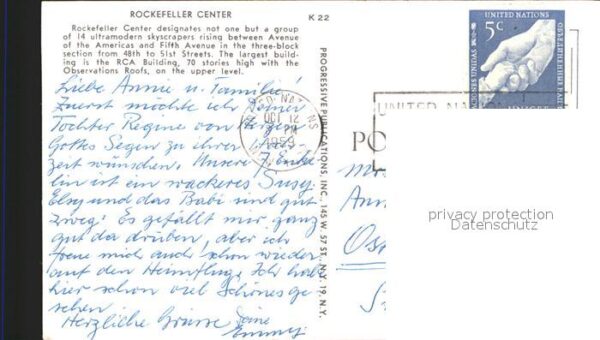 ROCKEFELLER CENTER
K 22
Rockefeller Center designates not one but a group
of 14 ultramodern skyscrapers rising between Avenue
of the Americas and Fifth Avenue in the three-block
section from 48th to 51st Streets. The largest build-
ing is the RCA Building, 70 stories high with the
Observations Roofs, on the upper level.
Liebe Annie u. Familie!
Zuerst möchte ich Deiner
Tochter Regine von Herzen
Gottes Segen zu ihrer
zeit wünschen. Unsere
lin ist ein wackeres Susy-
Elsy und das Babi und gut
zweg! Es gefällt mir ganz
gut da drüben, aber ich
freue mich auch schon wieder
auf den Heimflug. Ich hab
hier schon viel Schönes ge-
sehen.
Herzliche Grüsse Deine
Emmy
PROGRESSIVE PUBLICATIONS, INC. 145 W. 57 ST. N.Y. 19, N.Y.
UNITED NATIONS
5c
UNITED NATIONS
OCT 12
PM
1959
UNITED NATIONS
PO
Mrs
Ann
privacy protection
Datenschutz